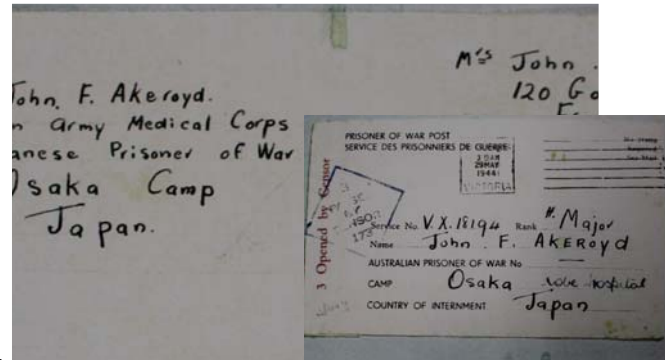 John. F. Akeroyd.
Army Medical Corps
Prisoner of War
Osaka Camp
Japan.
Mrs John
120
PRISONER OF WAR POST
SERVICE DES PRISONNIERS DE GUERRE
29 MAY
1944
VICTORIA
3 Opened by Censor
173
Service No. V.X.18194 Rank Major
Name John. F. AKEROYD
AUSTRALIAN PRISONER OF WAR No
CAMP Osaka hospital
COUNTRY OF INTERNMENT Japan